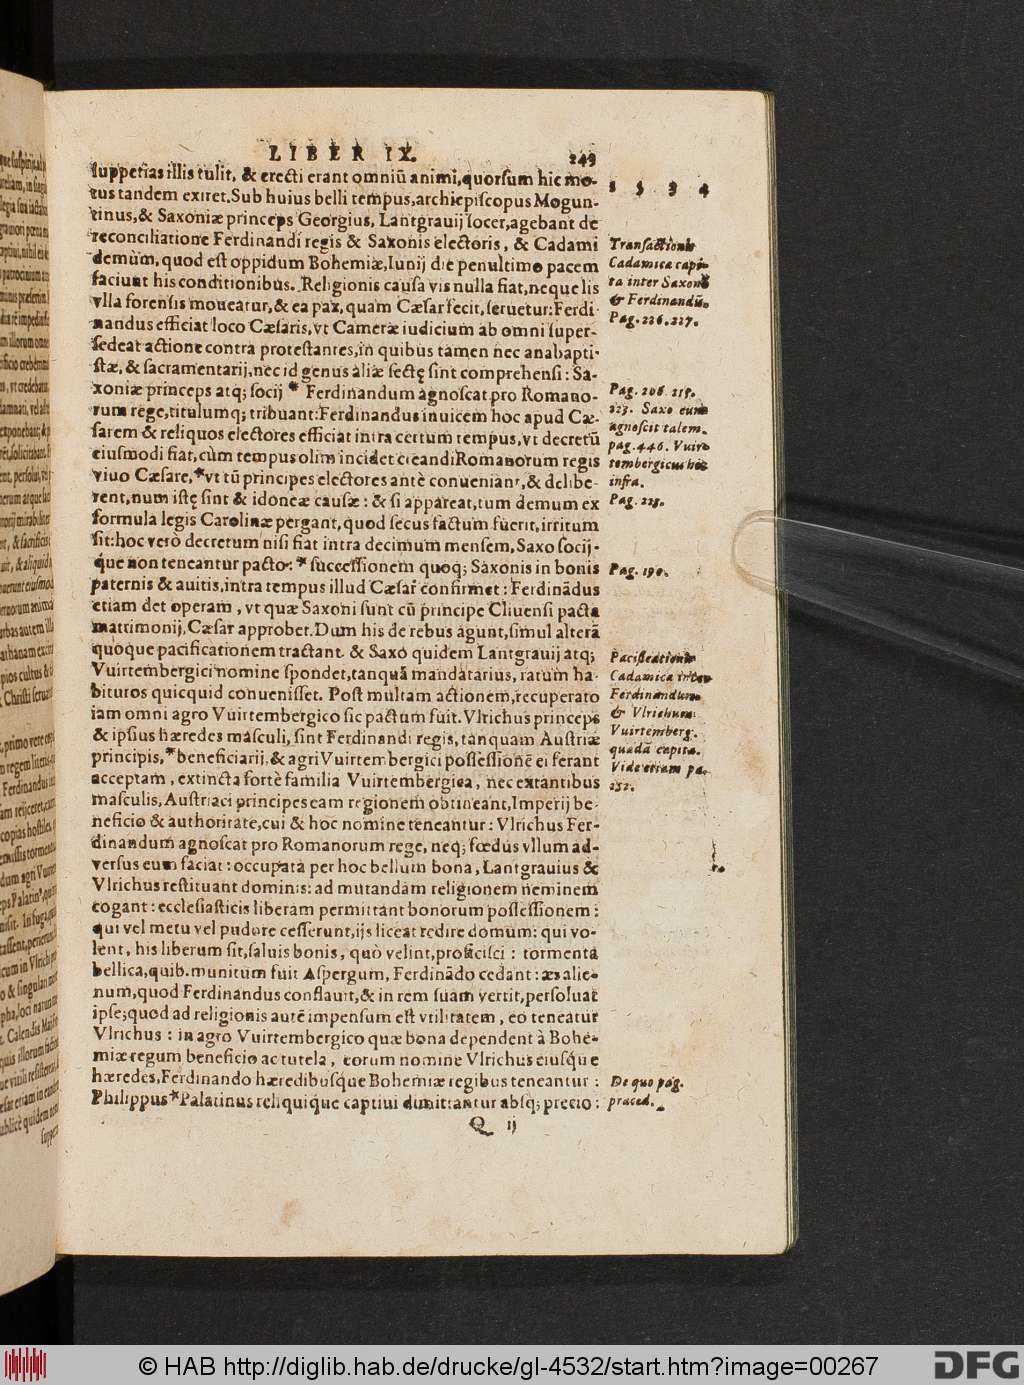 LIBER IX. 249
suppetias illis tulit, & erecti erant omniũ animi, quorsum hic mo-
tus tandem exiret. Sub huius belli tempus, archiepiscopus Mogun-
tinus, & Saxoniæ princeps Georgius, Lantgrauij socer, agebant de
reconciliatione Ferdinandi regis & Saxonis electoris, & Cadami
demùm, quod est oppidum Bohemiæ, Iunij die penultimo pacem
faciunt his conditionibus. Religionis causa vis nulla fiat, neque lis
vlla forensis moueatur, & ea pax, quam Cæsar fecit, seruetur: Ferdi-
nandus efficiat loco Cæsaris, vt Cameræ iudicium ab omni super-
sedeat actione contra protestantes, in quibus tamen nec anabapti-
stæ, & sacramentarij, nec id genus aliæ sectę sint comprehensi: Sa-
xoniæ princeps atq; socij * Ferdinandum agnoscat pro Romano-
rum rege, titulumq; tribuant: Ferdinandus inuicem hoc apud Cæ-
sarem & reliquos electores efficiat intra certum tempus, vt decretũ
eiusmodi fiat, cùm tempus olim incidet creandi Romanorum regis
viuo Cæsare, * vt tũ principes electores antè conueniant, & delibe-
rent, num istę sint & idoneæ causæ: & si appareat, tum demum ex
formula legis Carolinæ pergant, quod secus factum fuerit, irritum
sit: hoc verò decretum nisi fiat intra decimum mensem, Saxo socij-
que non teneantur pacto: * successionem quoq; Saxonis in bonis
paternis & auitis, intra tempus illud Cæsar confirmet: Ferdinãdus
etiam det operam, vt quæ Saxoni sunt cũ principe Cliuensi pacta
matrimonij, Cæsar approbet. Dum his de rebus agunt, simul alterã
quoque pacificationem tractant. & Saxo quidem Lantgrauij atq;
Vuirtembergici nomine spondet, tanquã mandatarius, ratum ha-
bituros quicquid conuenisset. Post multam actionem, recuperato
iam omni agro Vuirtembergico sic pactum fuit. Vlrichus princeps
& ipsius hæredes masculi, sint Ferdinandi regis, tanquam Austriæ
principis, * beneficiarij, & agri Vuirtembergici possessionẽ ei ferant
acceptam, extincta fortè familia Vuirtembergica, nec extantibus
masculis, Austriaci principes eam regionem obtineant, Imperij be-
neficio & authoritate, cui & hoc nomine teneantur: Vlrichus Fer-
dinandum agnoscat pro Romanorum rege, neq; fœdus vllum ad-
versus eum faciat: occupata per hoc bellum bona, Lantgrauius &
Vlrichus restituant dominis: ad mutandam religionem neminem
cogant: ecclesiasticis liberam permittant bonorum possessionem:
qui vel metu vel pudore cesserunt, ijs liceat redire domum: qui vo-
lent, his liberum sit, saluis bonis, quò velint, proficisci: tormenta
bellica, quib. munitum fuit Aspergum, Ferdinãdo cedant: æs alie-
num, quod Ferdinandus conflauit, & in rem suam vertit, persoluat
ipse; quod ad religionis autẽ impensum est vtilitatem, eo teneatur
Vlrichus: in agro Vuirtembergico quæ bona dependent à Bohe-
miæ regum beneficio ac tutela, eorum nomine Vlrichus eiusque
hæredes, Ferdinando hæredibusque Bohemiæ regibus teneantur:
Philippus * Palatinus reliquique captiui dimittantur absq; precio:
Q ij
1 5 3 4
Transactionis
Cadamica capi-
ta inter Saxonẽ
& Ferdinandũ.
Pag. 226. 227.
Pag. 206. 215.
223. Saxo eum
agnoscit talem.
pag. 446. Vuir-
tembergicus hoc
infra.
Pag. 223.
Pag. 190.
Pacificationis
Cadamica inter
Ferdinandum
& Vlrichum
Vuirtemberg.
quædã capita.
Vide etiam pa.
252.
De quo pag.
præced.
© HAB http://diglib.hab.de/drucke/gl-4532/start.htm?image=00267
DFG